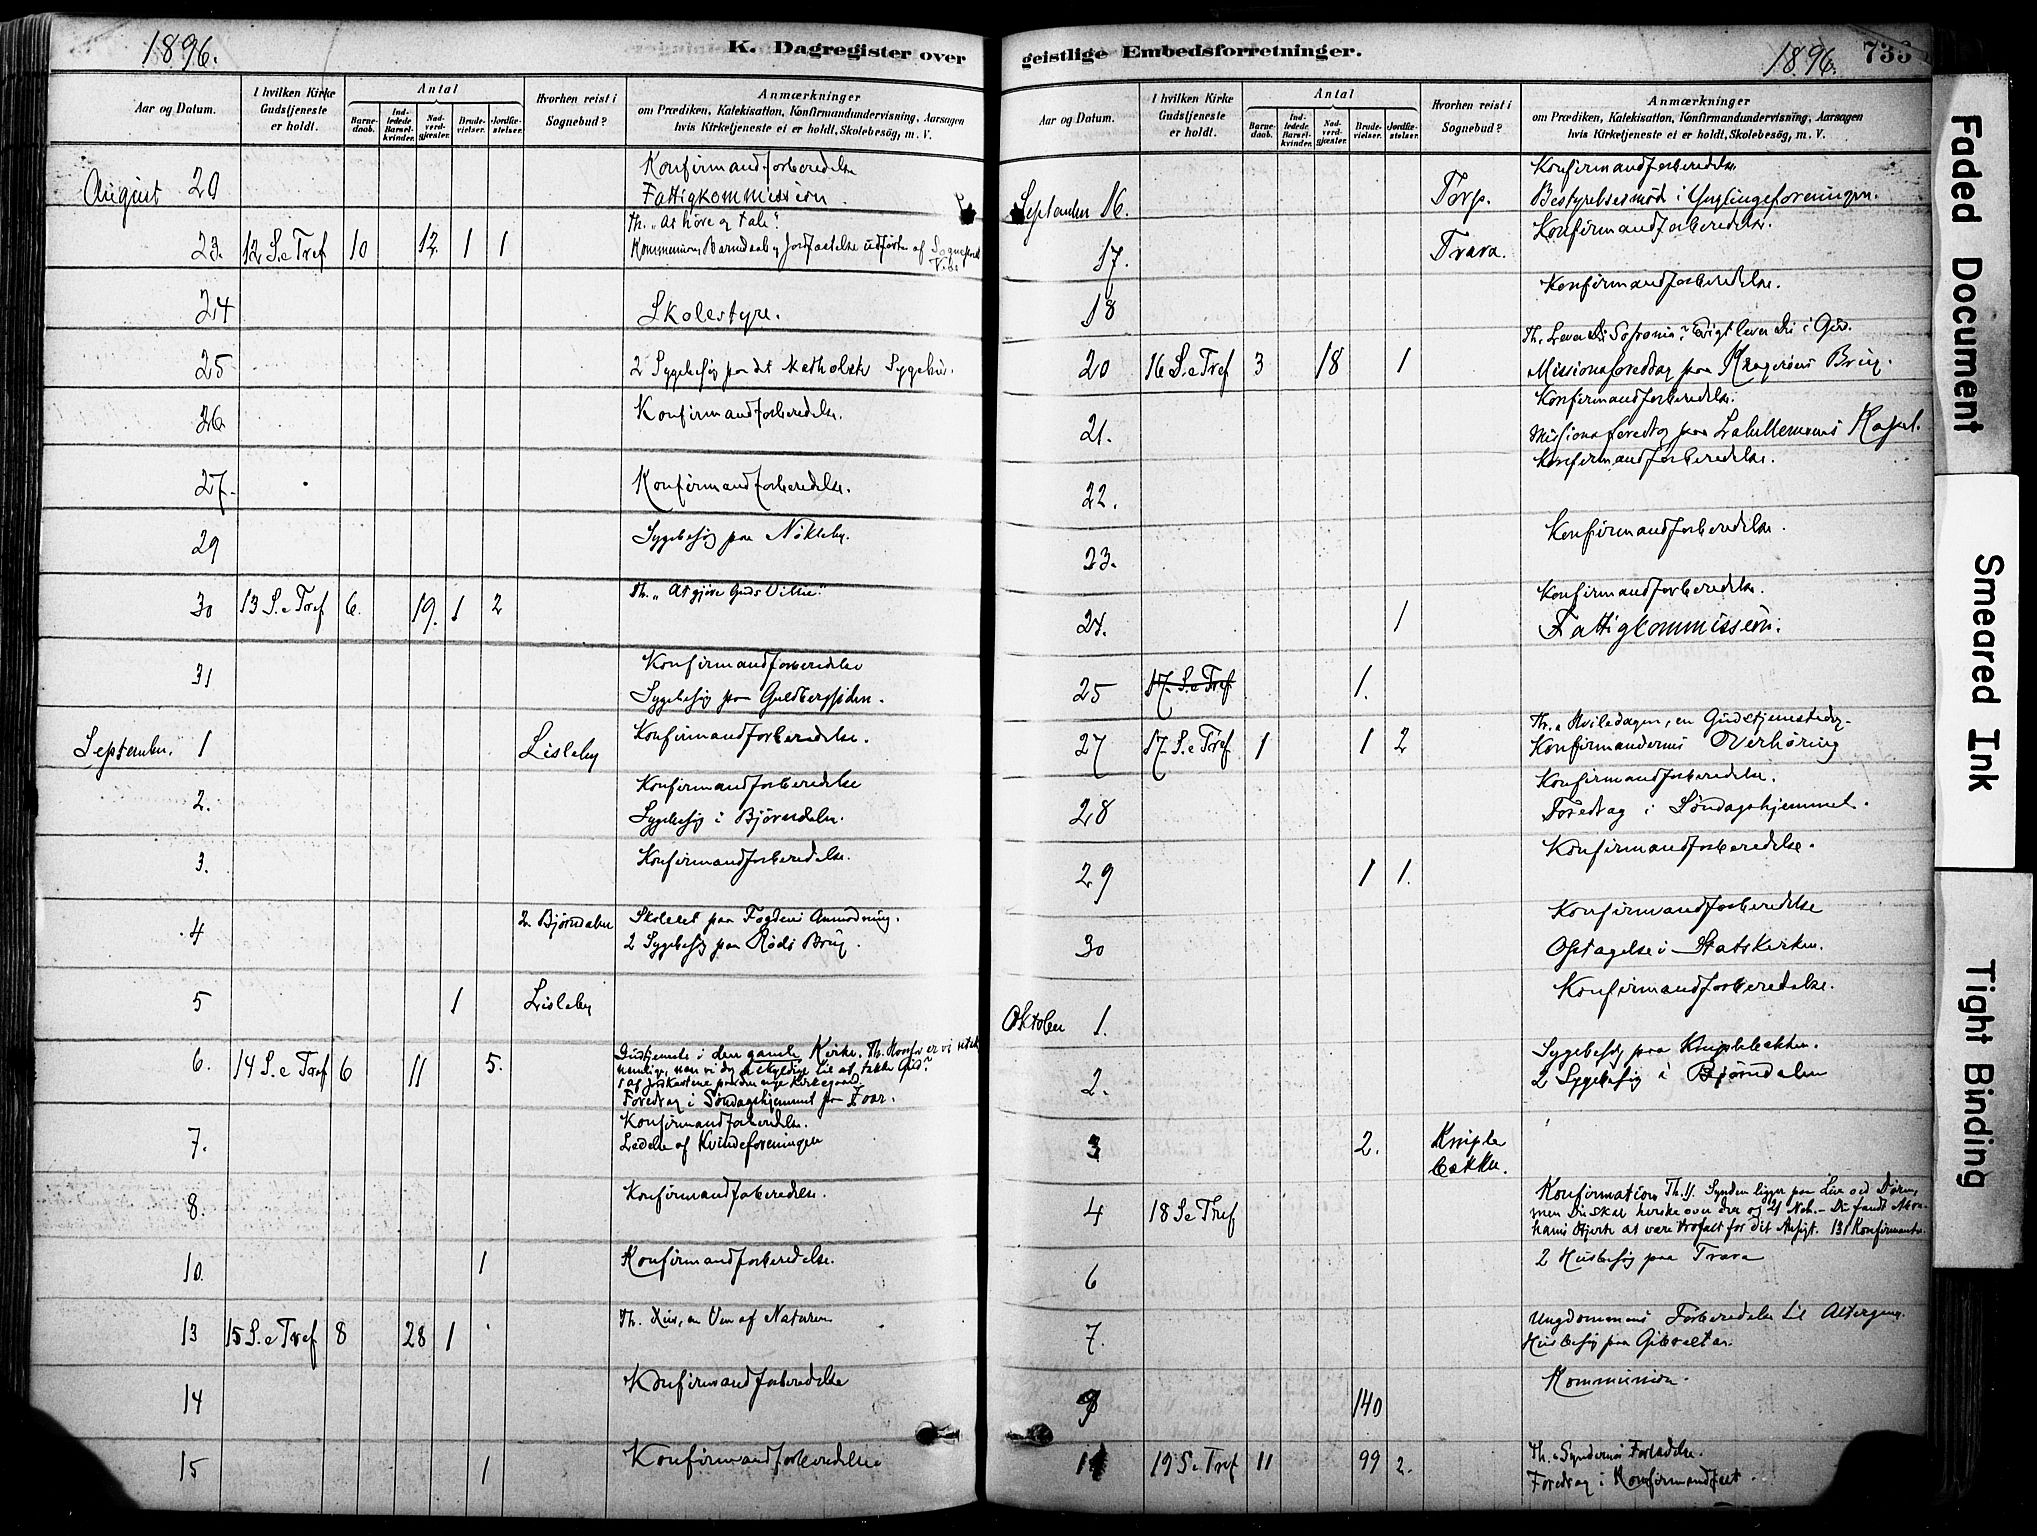 1896.
K. Dagregister over
Aar og Datum.
I hvilken Kirke Gudstjeneste er holdt.
Antal
Barnedaab.
Indledede Barselkvinder.
Nadverdgjæster.
Brudevielser.
Jordfæstelser.
Hvorhen reist i Sognebud?
Anmærkninger
om Prædiken, Katekisation, Konfirmandundervisning, Aarsagen
hvis Kirketjeneste ei er holdt, Skolebesög, m. V.
August 20 Konfirmandforberedelse
Fattigkommission.
Th. "At høre og tale".
23. 12 S. e Tref 10 12. 1 1 Kommunion, Barnedaab og Jordfæstelse udført af
24 Skolestyre.
25 2 Sygebesøg paa det katholske Sygehus.
26 Konfirmandforberedelse.
27. Konfirmandforberedelse.
29 Sygebesøg paa Nøkleby.
30 13 S. e Tref 6. 19. 1 2 Th. "At gjøre Guds Villie"
31 Konfirmandforberedelse
Sygebesøg paa Guldbergsiden.
September. 1 Lisleby Konfirmandforberedelse.
2. Konfirmandforberedelse
Sygebesøg i Bjørndalen.
3. Konfirmandforberedelse.
4 2 Bjørndalen Skoleret paa Fogdens Anmodning.
2 Sygebesøg paa Røds Brug.
5 1 Lisleby
6. 14 S. e Tref 6 11 5. Gudstjeneste i den gamle Kirke. Th. Hvorfor er vi
nemlige, naar vi dog er skyldige til at takke Gud?
5 af Jordkastene paa den nye Kirkegaard
Foredrag i Søndagshjemmet for
7. Konfirmandforberedelse.
Ledelse af Kvindeforeningen
8. Konfirmandforberedelse.
10. 1 Konfirmandforberedelse.
13 15 S. e Tref 8 28 1 Th. en Ven af Naturen
14 Konfirmandforberedelse
15 1 Konfirmandforberedelse
geistlige Embedsforretninger.
1896.
733
Aar og Datum.
I hvilken Kirke Gudstjeneste er holdt.
Antal
Barnedaab.
Indledede Barselkvinder.
Nadverdgjæster.
Brudevielser.
Jordfæstelser.
Hvorhen reist i Sognebud?
Anmærkninger
om Prædiken, Katekisation, Konfirmandundervisning, Aarsagen
hvis Kirketjeneste ei er holdt, Skolebesög, m. V.
Konfirmandforberedelse
September 16. Torp. Bestyrelsesmøde i Ynglingeforeningen.
17. Trara. Konfirmandforberedelse.
18 Konfirmandforberedelse.
Th. Lever Du
20 16 S. e Tref 3 18 1 Missionsforedrag paa Kragerøens Brug.
Konfirmandforberedelse.
21. Missionsforedrag paa Kapel.
22. Konfirmandforberedelse.
23. Konfirmandforberedelse.
Konfirmandforberedelse.
24. 1 Fattigkommission.
25 17. S. e Tref 1.
Th. "Hviledagen, en Gudstjenestedag
27 17. S. e Tref 1 1 2 Konfirmandernes Overhøring
Konfirmandforberedelse.
28 Foredrag i Søndagshjemmet.
29 1 1. Konfirmandforberedelse.
Konfirmandforberedelse
30 Optagelse i Statskirken.
Oktober 1. Konfirmandforberedelse.
Sygebesøg paa Kniplebakken.
2. 2 Sygebesøg i Bjørndalen
3 2. Kniple
bakken.
4 18 S e Tref Konfirmation. Th. Synden ligger paa Lur ved Døren,
men Du skal herske over den og 2) Neh. – Du fandt Abra-
hams Hjerte at være trofast for dit Ansigt. 131 Konfirmanter.
6 2 Husbesøg paa Trara
7. Ungdommens Forberedelse til Altergang.
Husbesøg paa Gibraltar.
9 140 Kommunion.
11 19 S. e Tref 11 99 2. Th. "Syndernes Forladelse.
Foredrag i Konfirmandfest.
Faded Document
Smeared Ink
Tight Binding